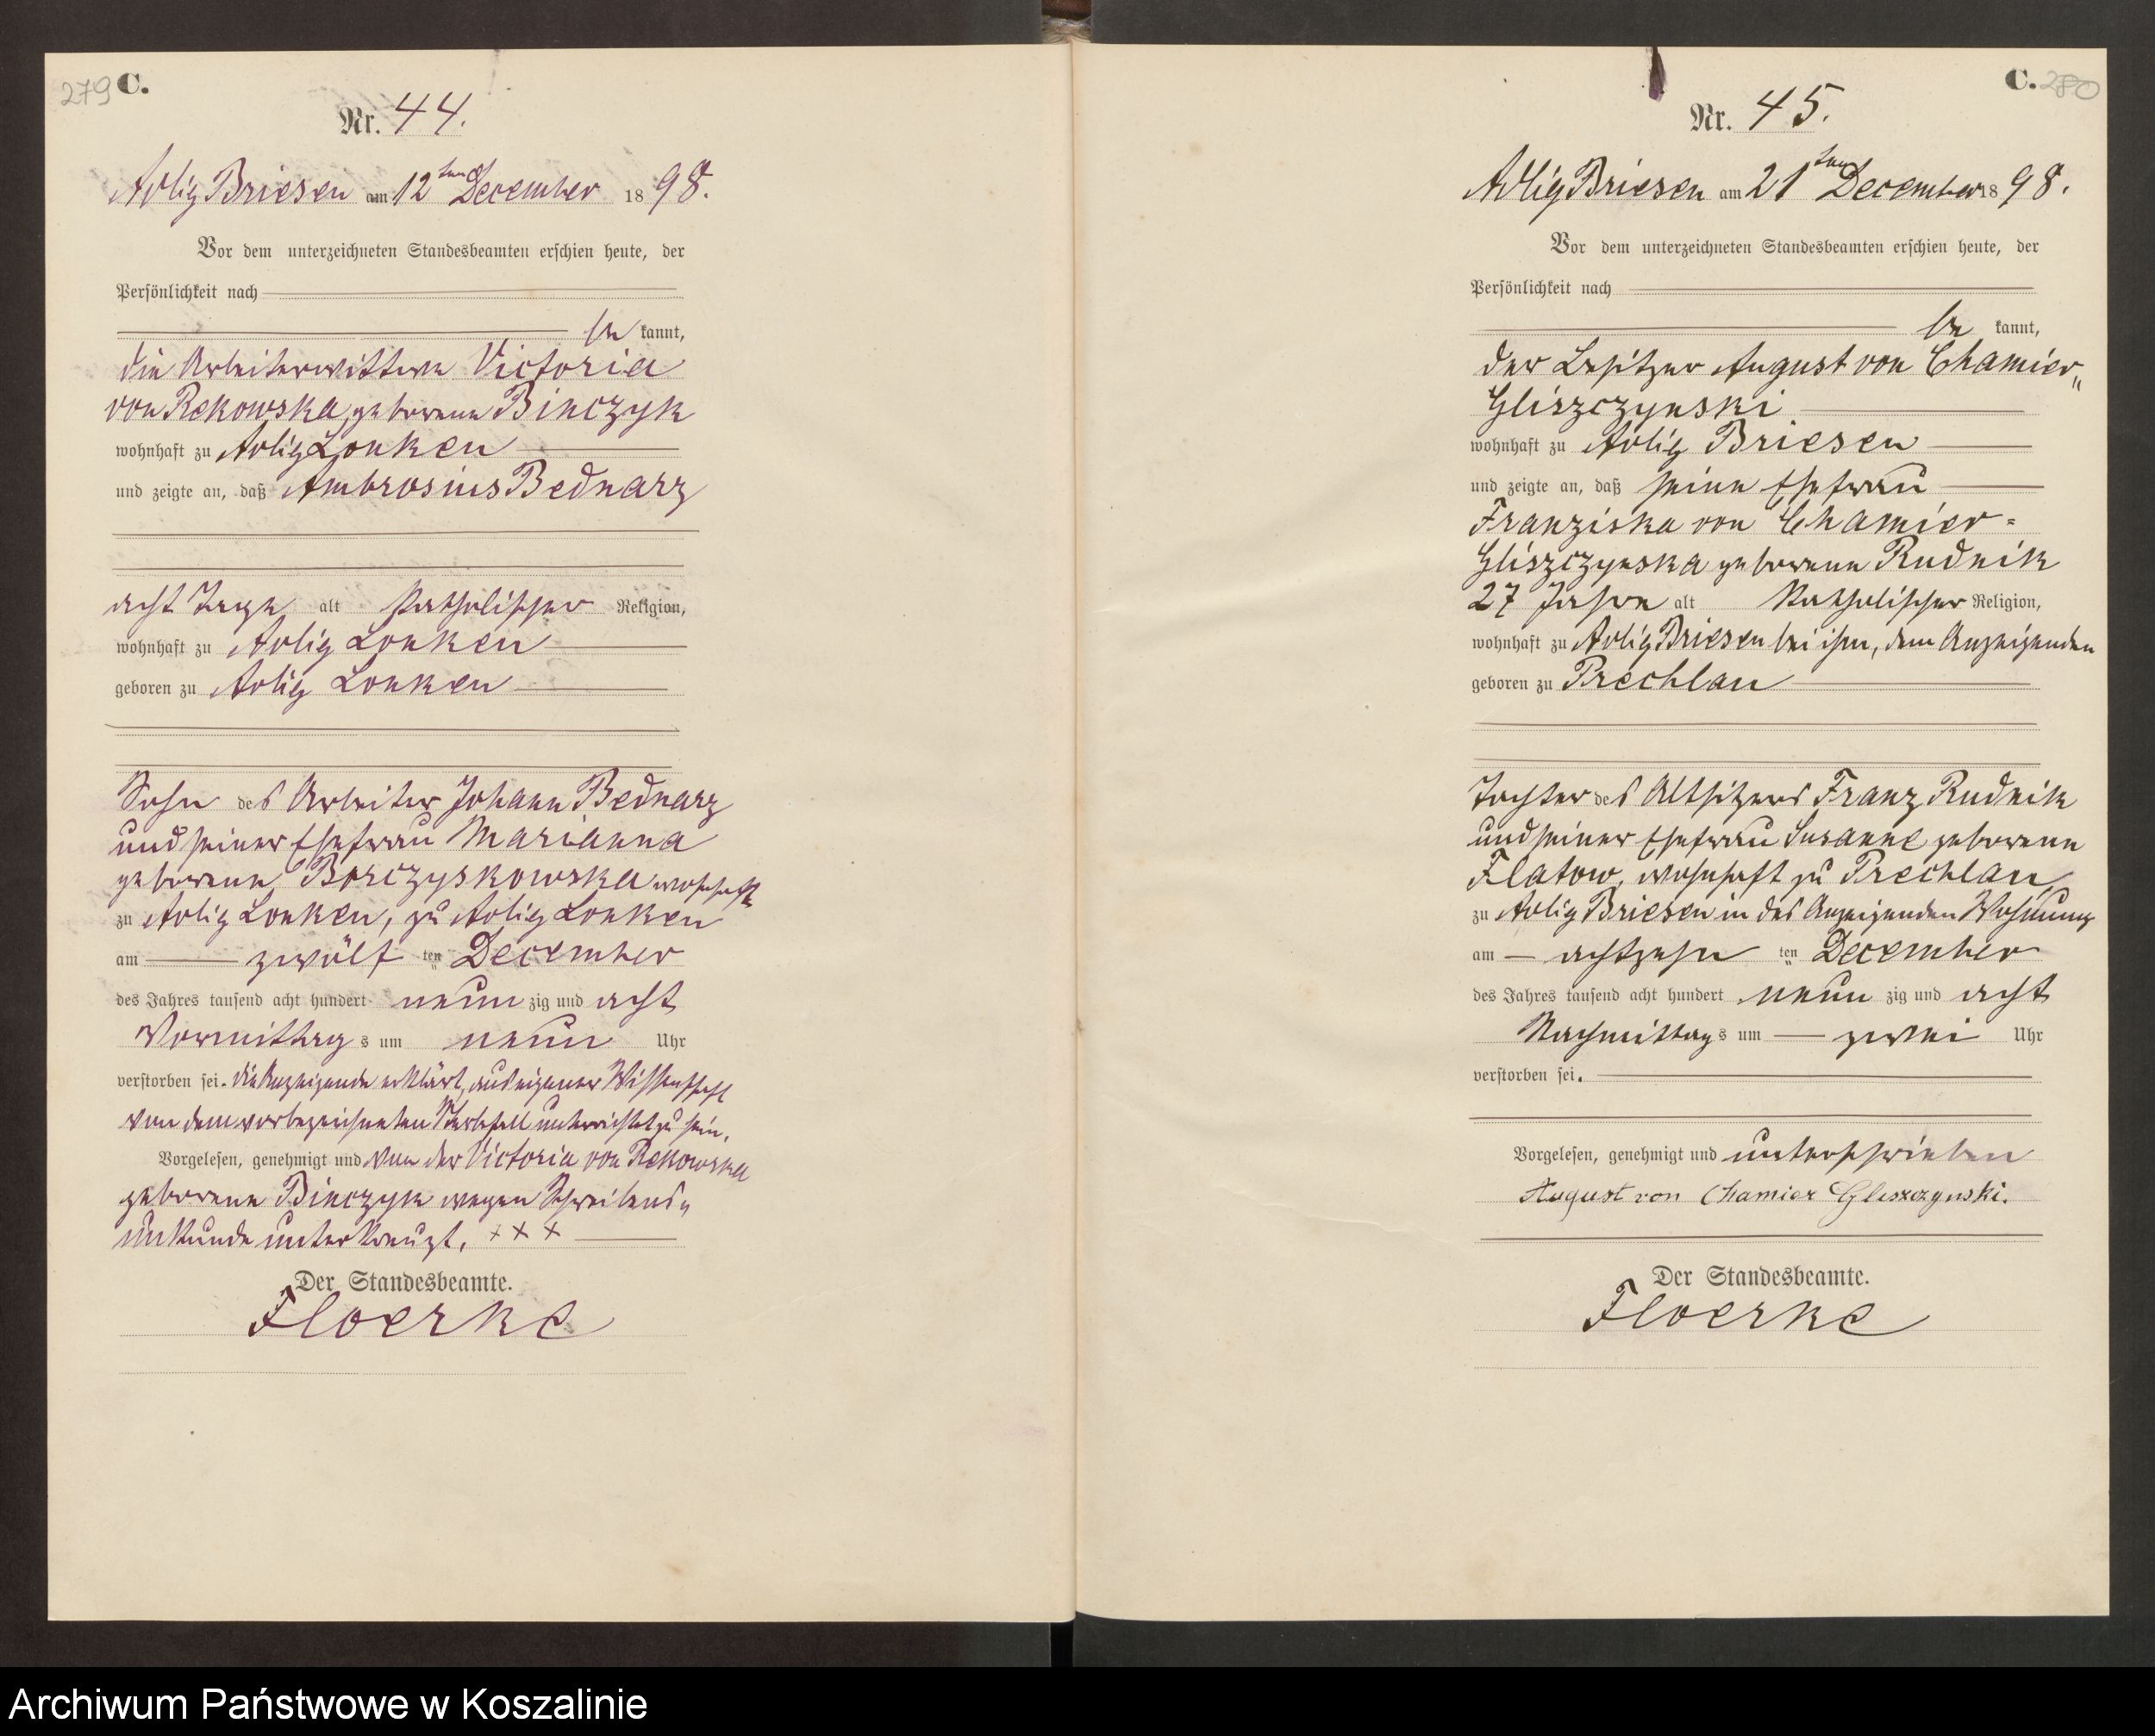 279 C.
Nr. 44.
Adlig Briesen am 12ten December 1898.
Vor dem unterzeichneten Standesbeamten erschien heute, der
Persönlichkeit nach
be kannt,
die Arbeiterwittwe Victoria
von Rekowska, geborene Binczyk
wohnhaft zu Adlig Lonken
und zeigte an, daß Ambrosius Bednarz
acht Tage alt katholischer Religion,
wohnhaft zu Adlig Lonken
geboren zu Adlig Lonken
Sohn des Arbeiter Johann Bednarz
und seiner Ehefrau Marianna
geborene Borczyskowska wohnhaft
zu Adlig Lonken, zu Adlig Lonken
am zwölf ten December
des Jahres tausend acht hundert neun zig und acht
Vormittags um neun Uhr
verstorben sei. Die Anzeigende erklärt, aus eigener Wissenschaft
von dem vorbezeichneten Sterbefall unterrichtet zu sein.
Vorgelesen, genehmigt und von der Victoria von Rekowska
geborene Binczyk wegen Schreibens„
unkunde unterkreuzt. + + +
Der Standesbeamte.
Floerke
C. 280
Nr. 45.
Adlig Briesen am 21ten December 1898.
Vor dem unterzeichneten Standesbeamten erschien heute, der
Persönlichkeit nach
be kannt,
der Besitzer August von Chamier„
Gliszczynski
wohnhaft zu Adlig Briesen
und zeigte an, daß seine Ehefrau
Franziska von Chamier=
Gliszczynska geborene Rudnik
27 Jahre alt katholischer Religion,
wohnhaft zu Adlig Briesen bei ihm, dem Anzeigenden
geboren zu Prechlau
Tochter des Altsitzers Franz Rudnik
und seiner Ehefrau Susanne geborene
Flatow, wohnhaft zu Prechlau,
zu Adlig Briesen in des Anzeigenden Wohnung
am achtzehn ten December
des Jahres tausend acht hundert neun zig und acht
Nachmittags um zwei Uhr
verstorben sei.
Vorgelesen, genehmigt und unterschrieben
August von Chamier Gliszczynski.
Der Standesbeamte.
Floerke
Archiwum Państwowe w Koszalinie